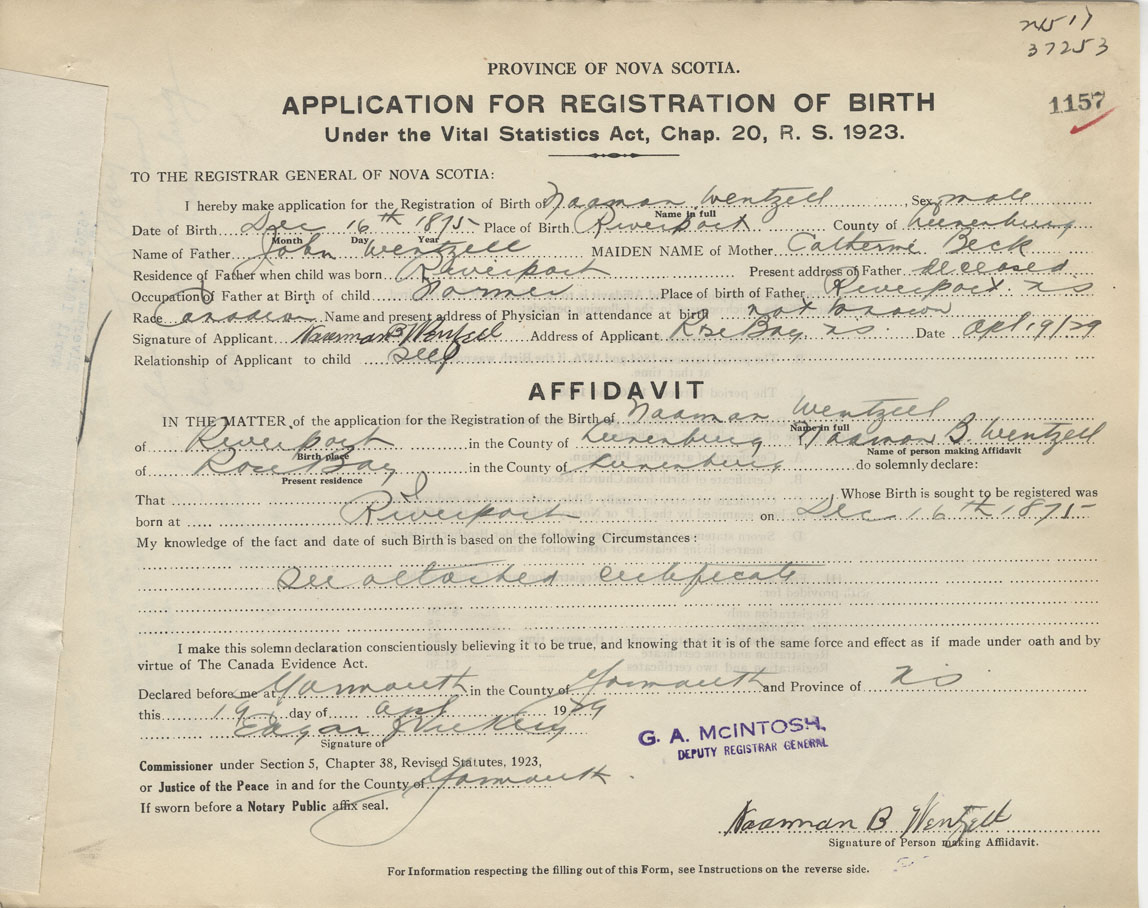 37253
PROVINCE OF NOVA SCOTIA.
APPLICATION FOR REGISTRATION OF BIRTH
1157
Under the Vital Statistics Act, Chap. 20, R. S. 1923.
TO THE REGISTRAR GENERAL OF NOVA SCOTIA:
I hereby make application for the Registration of Birth of Naaman Wentzell , Sex male
Name in full
Date of Birth Dec 16th 1875 Place of Birth Riverport County of Lunenburg
Month Day Year
Name of Father John Wentzell MAIDEN NAME of Mother Catherine Beck
Residence of Father when child was born Riverport Present address of Father deceased
Occupation of Father at Birth of child Farmer Place of birth of Father Riverport. NS
Race Canadian Name and present address of Physician in attendance at birth not known
Signature of Applicant Naaman B Wentzell Address of Applicant Rose Bay, NS. Date Apl 19/29
Relationship of Applicant to child Self
AFFIDAVIT
IN THE MATTER of the application for the Registration of the Birth of Naaman Wentzell
Name in full
of Riverport in the County of Lunenburg Naaman B. Wentzell
Birth place Name of person making Affidavit
of Rose Bay in the County of Lunenburg do solemnly declare:
Present residence
That I Whose Birth is sought to be registered was
born at Riverport on Dec 16th 1875
My knowledge of the fact and date of such Birth is based on the following Circumstances :
See attached certificate
I make this solemn declaration conscientiously believing it to be true, and knowing that it is of the same force and effect as if made under oath and by
virtue of The Canada Evidence Act.
Declared before me at Yarmouth in the County of Yarmouth and Province of NS
this 19 day of Apl 1929
Edgar J Vickery
Signature of
G. A. McINTOSH,
DEPUTY REGISTRAR GENERAL
Commissioner under Section 5, Chapter 38, Revised Statutes, 1923,
or Justice of the Peace in and for the County of Yarmouth.
If sworn before a Notary Public affix seal.
Naaman B Wentzell
Signature of Person making Affidavit.
For Information respecting the filling out of this Form, see Instructions on the reverse side.